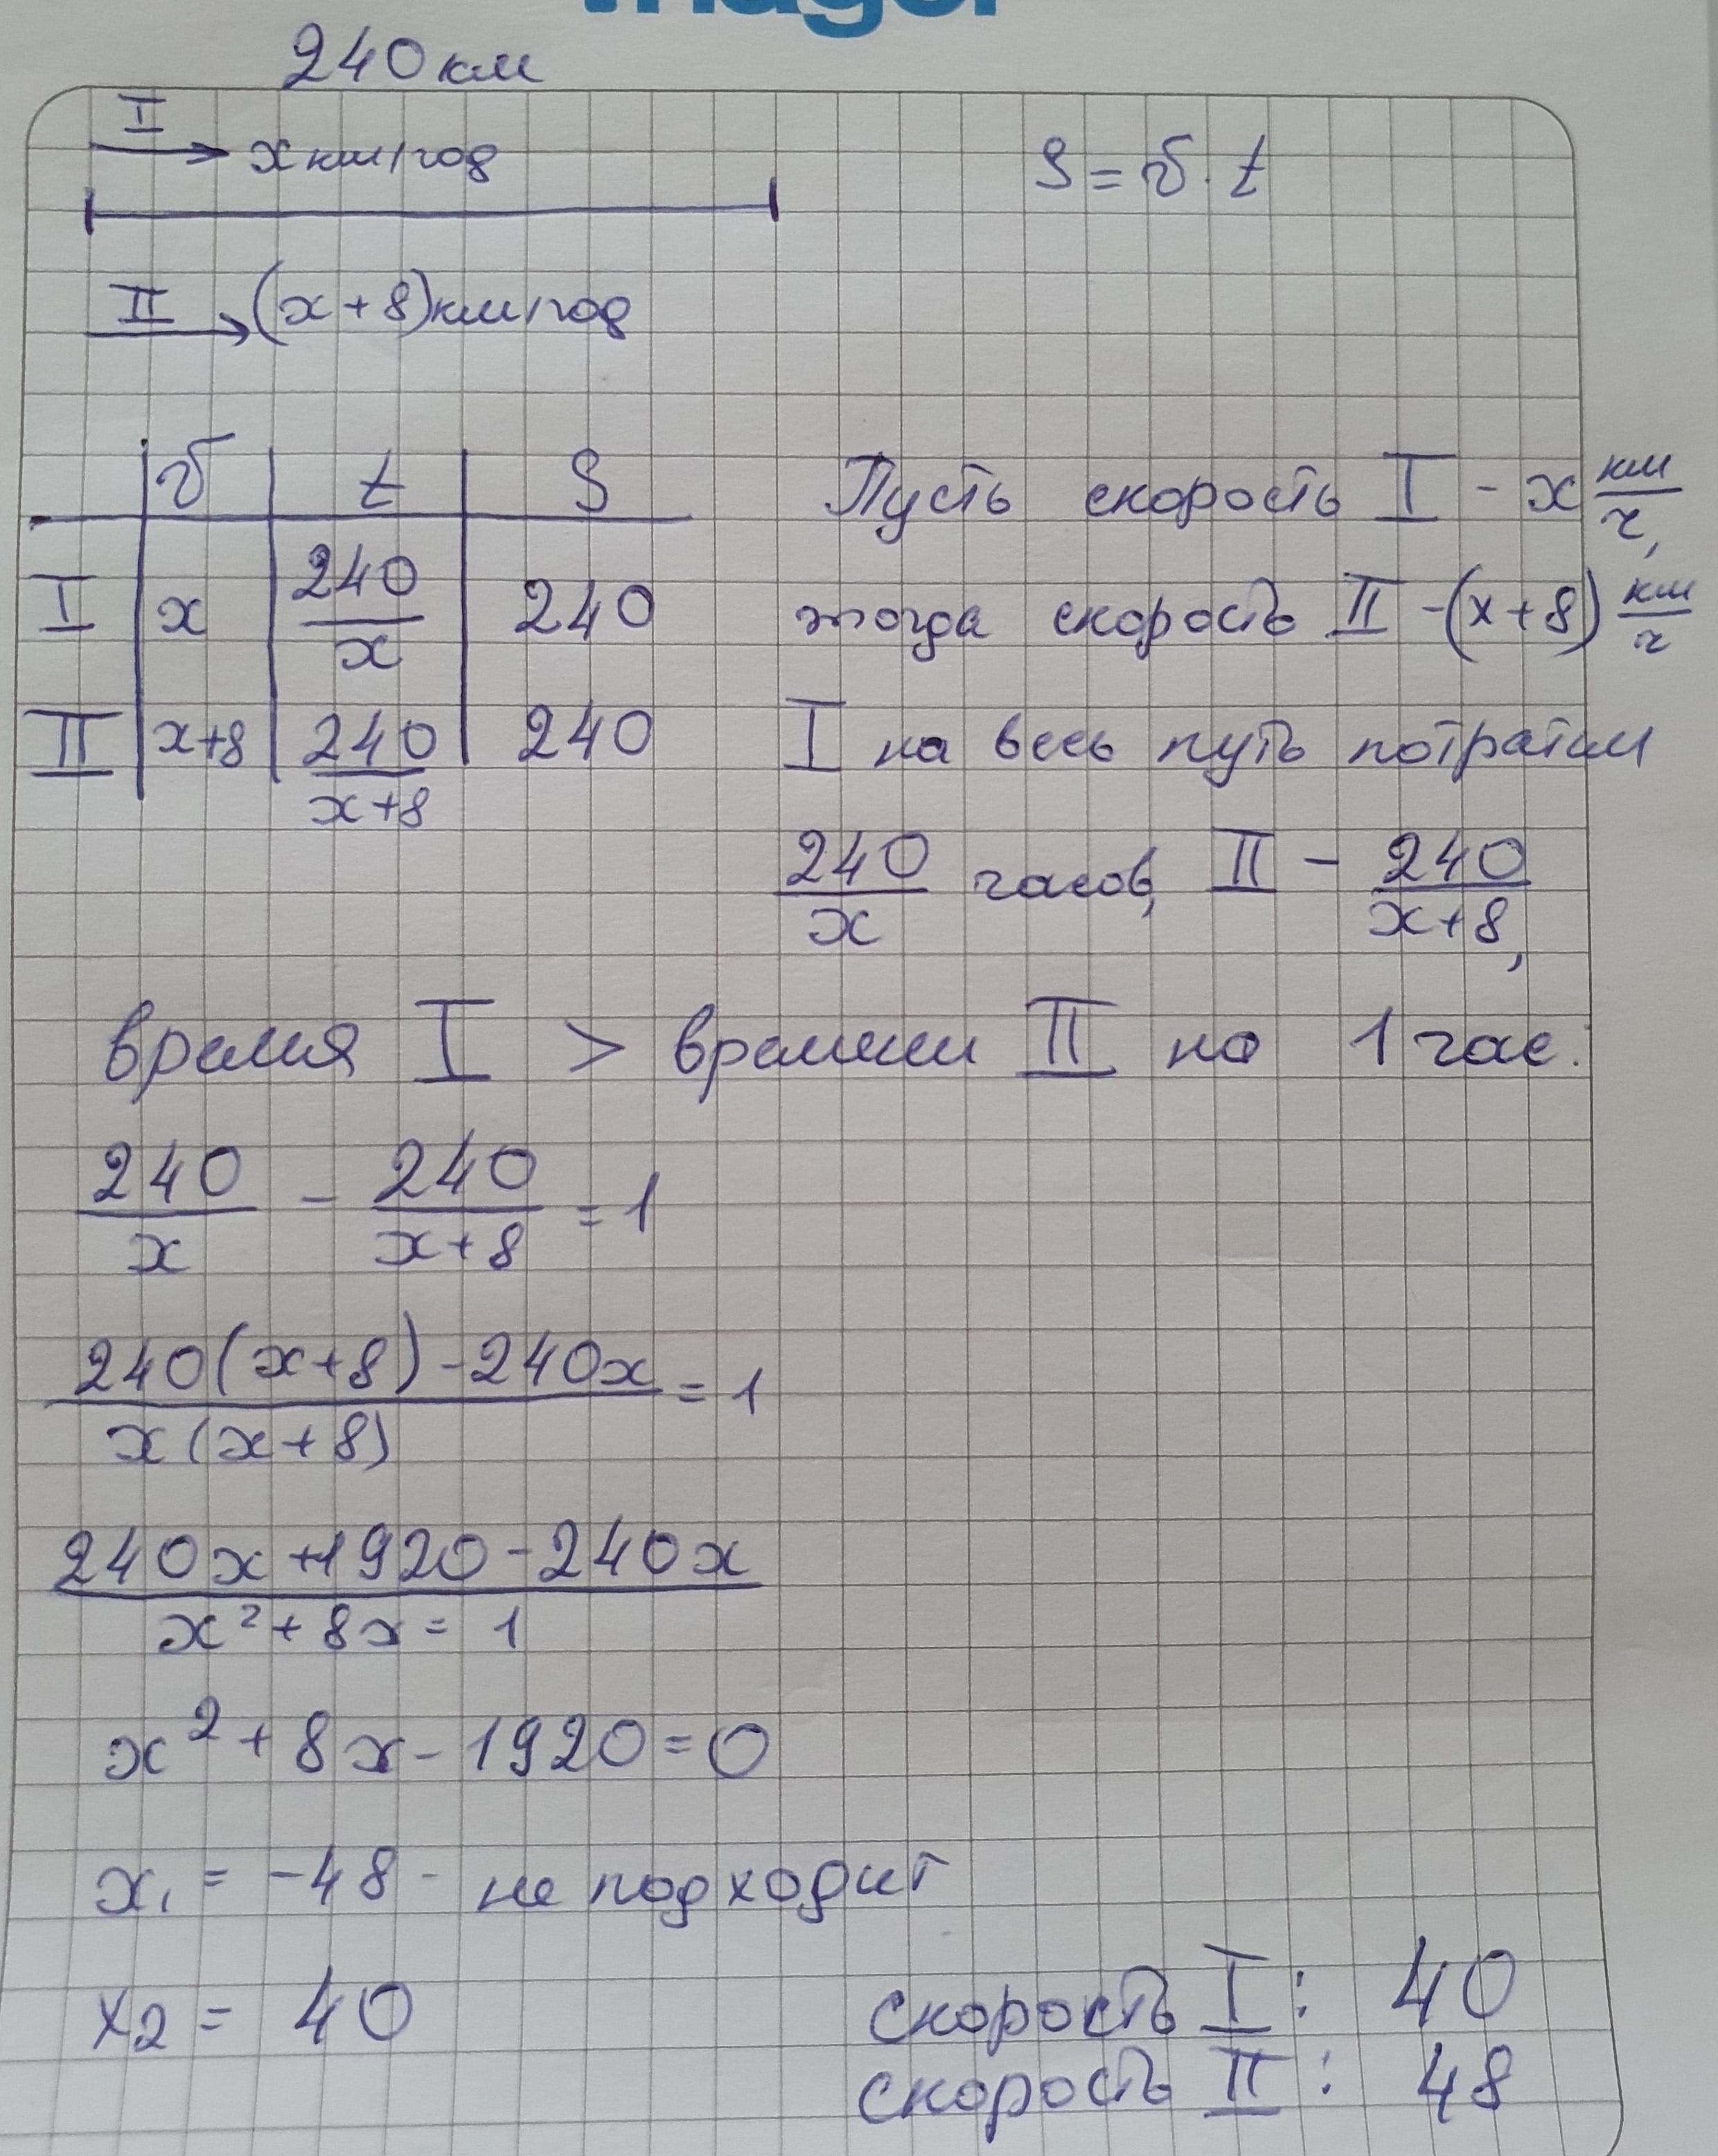 240 км
I
x км/год
S = v · t
II (x + 8) км/год
v t S
I x 240/x 240
II x+8 240/x+8 240
Пусть скорость I - x км/ч,
тогда скорость II - (x + 8) км/ч
I на весь путь потратил
240/x часов, II - 240/x+8,
время I > времени II на 1 час.
240/x - 240/x+8 = 1
240(x+8) - 240x / x(x+8) = 1
240x + 1920 - 240x / x² + 8x = 1
x² + 8x - 1920 = 0
x₁ = -48 - не подходит
x₂ = 40
скорость I: 40
скорость II: 48